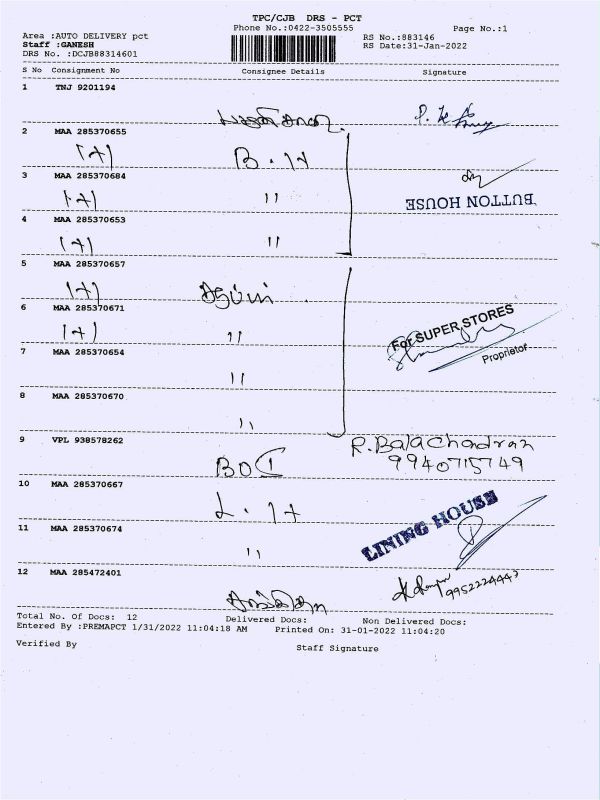 TPC/CJB DRS - PCT
Phone No.:0422-3505555
Page No.:1
Area :AUTO DELIVERY pct
RS No.:883146
Staff :GANESH
RS Date:31-Jan-2022
DRS No. :DCJB88314601
S No Consignment No Consignee Details Signature
1 TNJ 9201194
2 MAA 285370655
(+) B. H
3 MAA 285370684
(+) "
BUTTON HOUSE
4 MAA 285370653
(+) "
5 MAA 285370657
(+)
6 MAA 285370671
(+) "
For SUPER STORES
Proprietor
7 MAA 285370654
"
8 MAA 285370670
"
9 VPL 938578262
R.BalaChandran
BOI 9940715749
10 MAA 285370667
L. H
LINING HOUSE
11 MAA 285370674
"
12 MAA 285472401
Total No. Of Docs: 12 Delivered Docs: Non Delivered Docs:
Entered By :PREMAPCT 1/31/2022 11:04:18 AM Printed On: 31-01-2022 11:04:20
Verified By Staff Signature